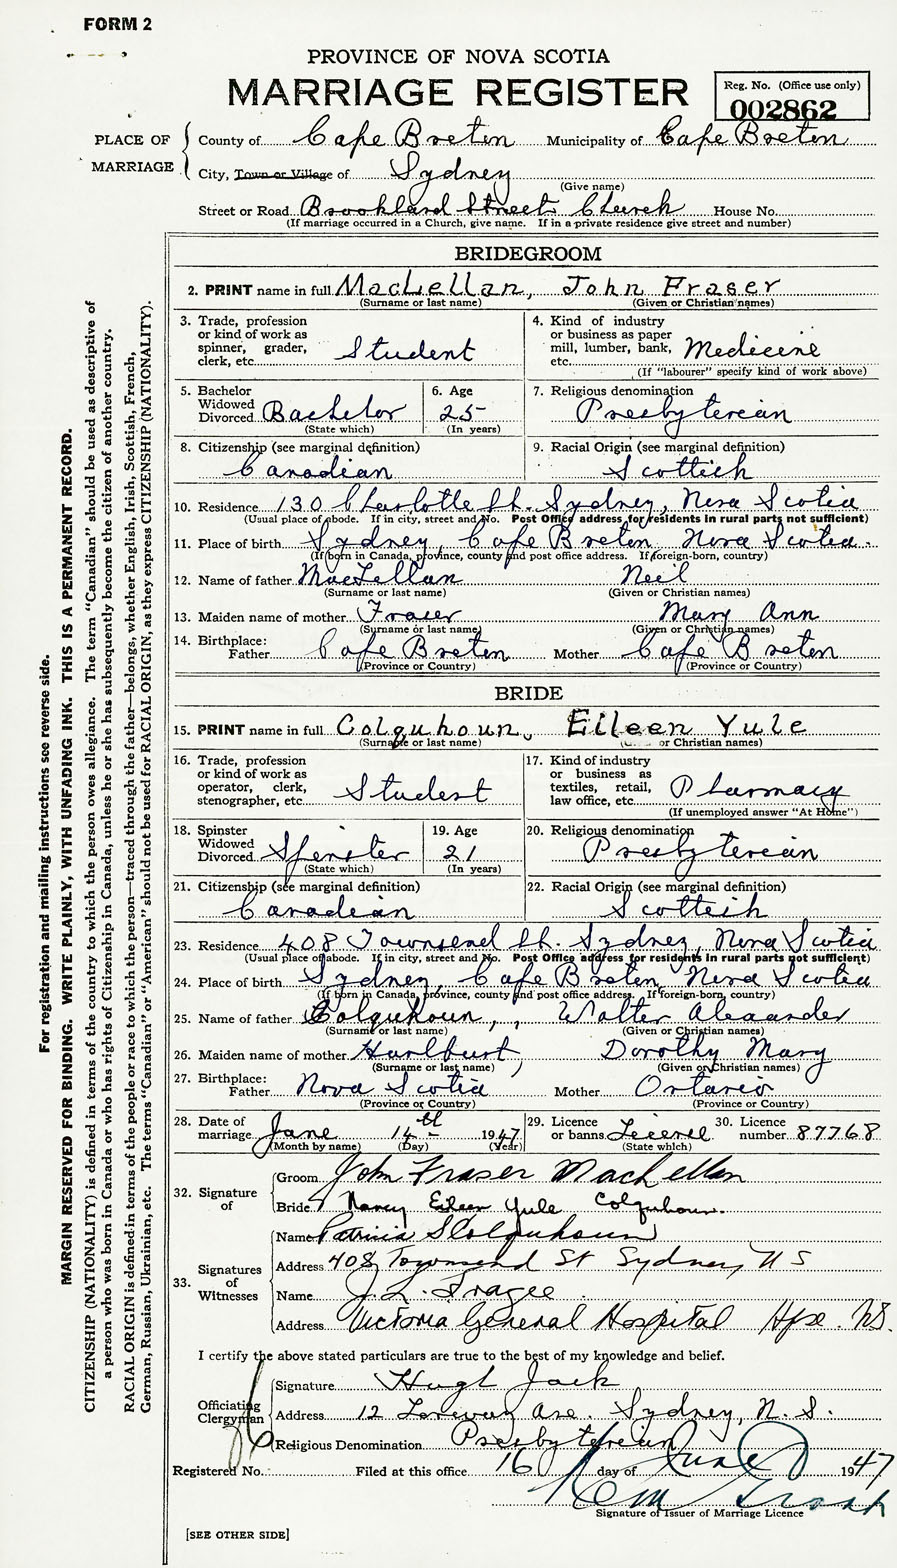 FORM 2
PROVINCE OF NOVA SCOTIA
MARRIAGE REGISTER
Reg. No. (Office use only)
002862
PLACE OF MARRIAGE
County of Cape Breton Municipality of Cape Breton
City, Town or Village of Sydney
(Give name)
Street or Road Brookland Street Church House No.
(If marriage occurred in a Church, give name. If in a private residence give street and number)
BRIDEGROOM
2. PRINT name in full MacLellan, John Fraser
(Surname or last name) (Given or Christian names)
3. Trade, profession or kind of work as spinner, grader, clerk, etc. Student
4. Kind of industry or business as paper mill, lumber, bank, etc. Medicine
(If "labourer" specify kind of work above)
5. Bachelor Widowed Divorced Bachelor
(State which)
6. Age 25
(In years)
7. Religious denomination Presbyterian
8. Citizenship (see marginal definition) Canadian
9. Racial Origin (see marginal definition) Scottish
10. Residence 130 Charlotte St. Sydney, Nova Scotia
(Usual place of abode. If in city, street and No. Post Office address for residents in rural parts not sufficient)
11. Place of birth Sydney, Cape Breton Nova Scotia.
(If born in Canada, province, county and post office address. If foreign-born, country)
12. Name of father MacLellan Neil
(Surname or last name) (Given or Christian names)
13. Maiden name of mother Fraser Mary Ann
(Surname or last name) (Given or Christian names)
14. Birthplace: Father Cape Breton Mother Cape Breton
(Province or Country) (Province or Country)
BRIDE
15. PRINT name in full Colquhoun, Eileen Yule
(Surname or last name) or Christian names)
16. Trade, profession or kind of work as operator, clerk, stenographer, etc. Student
17. Kind of industry or business as textiles, retail, law office, etc. Pharmacy
(If unemployed answer "At Home")
18. Spinster Widowed Divorced Spinster
(State which)
19. Age 21
(In years)
20. Religious denomination Presbyterian
21. Citizenship (see marginal definition) Canadian
22. Racial Origin (see marginal definition) Scottish
23. Residence 408 Townsend St. Sydney, Nova Scotia
(Usual place of abode. If in city, street and No. Post Office address for residents in rural parts not sufficient)
24. Place of birth Sydney, Cape Breton, Nova Scotia
(If born in Canada, province, county and post office address. If foreign-born, country)
25. Name of father Colquhoun, Walter Alexander
(Surname or last name) (Given or Christian names)
26. Maiden name of mother Hurlburt, Dorothy Mary
(Surname or last name) (Given or Christian names)
27. Birthplace: Father Nova Scotia Mother Ontario
(Province or Country) (Province or Country)
28. Date of marriage June 14th 1947
(Month by name) (Day) (Year)
29. Licence or banns License
(State which)
30. Licence number 87768
32. Signature of
Groom John Fraser MacLellan
Bride Nancy Eileen Yule Colquhoun.
33. Signatures of Witnesses
Name Patricia S Colquhoun
Address 408 Townsend St Sydney, N S
Name J. L.
Address Victoria General Hospital Hfx. N.S.
I certify the above stated particulars are true to the best of my knowledge and belief.
Officiating Clergyman
Signature Hugh Jack
Address 12 Ave. Sydney, N. S.
Religious Denomination Presbyterian
Registered No. Filed at this office 16 day of June 1947
Signature of Issuer of Marriage Licence
[SEE OTHER SIDE]
For registration and mailing instructions see reverse side.
MARGIN RESERVED FOR BINDING. WRITE PLAINLY, WITH UNFADING INK. THIS IS A PERMANENT RECORD.
CITIZENSHIP (NATIONALITY) is defined in terms of the country to which the person owes allegiance. The term "Canadian" should be used as descriptive of
a person who was born in Canada or who has rights of Citizenship in Canada, unless he or she has subsequently become the citizen of another country.
RACIAL ORIGIN is defined in terms of the people or race to which the person—traced through the father—belongs, whether English, Irish, Scottish, French,
German, Russian, Ukrainian, etc. The terms "Canadian" or "American" should not be used for RACIAL ORIGIN, as they express CITIZENSHIP (NATIONALITY).